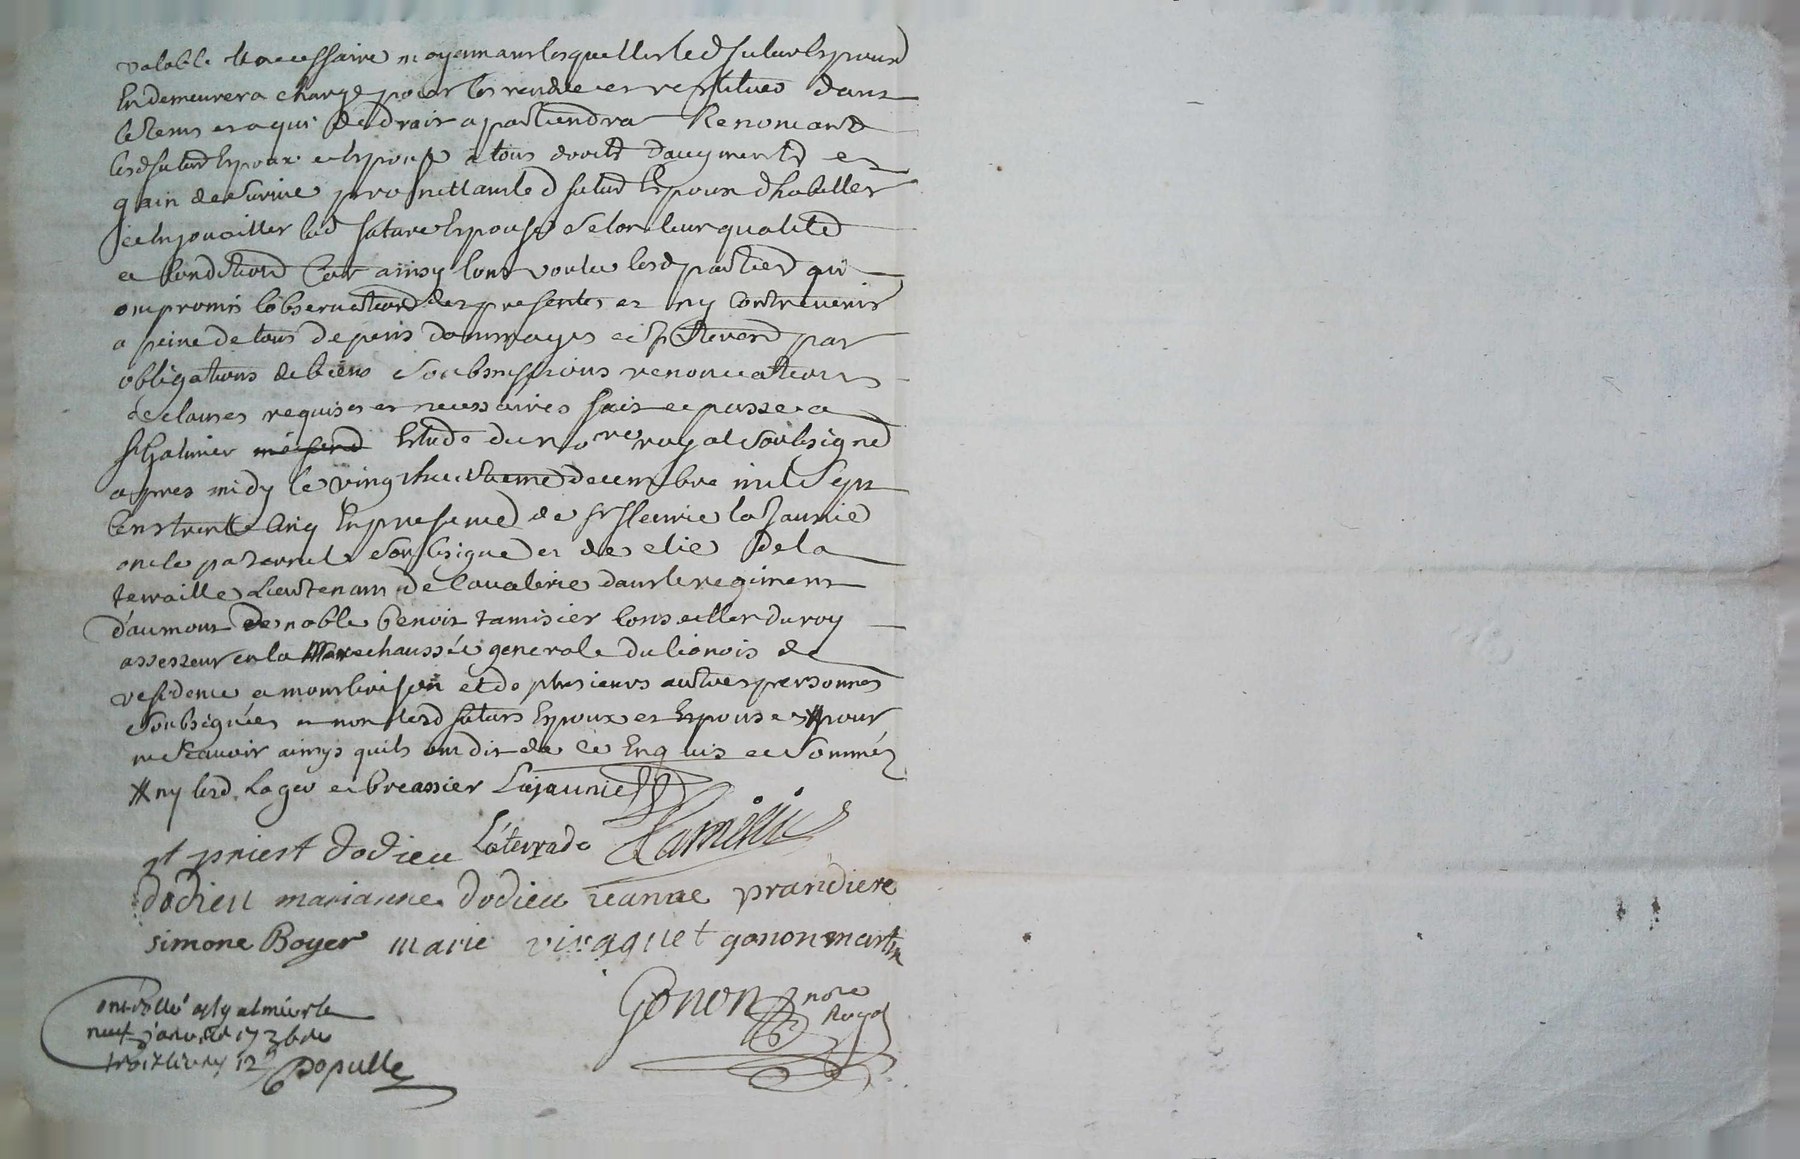 valable et necessaire moyennant lesquelles led futur Espoux
En demeurera chargé pour les rendre et restituer dans
le tems et a qui de droit apartiendra Renoncant
lesd futurs Espoux et Espouse a tous droits daugments et
gain de survie promettant led futur Espoux dhabiller
et Enjouailler lad future Espouse selon leur qualité
et Condition Car ainsy lont voulu lesd parties qui
ont promis lobservation des presentes et ny Contrevenir
a peine de tous depens dommages et interest par
obligations de biens soubmissions renonciations
et clauses requises et necessaires fait et passé a
St Galmier Etude du no.re royal soubsigné
apres midy le vingt huictieme decembre mil sept
Cent trente Cinq En presence de Sr fleurie la Jaunie
oncle paternel soubsigné et de elie de la
terraille Lieutenant de Cavalerie dans le regiment
d'aumont de noble benoit tamisier Conseiller du roy
assesseur en la Marechaussée generale du lionois de
residence a montbrison et de plusieurs autres personnes
soubsignées et non lesd futurs Espoux et Espouse # pour
ne scavoir ainsy quils ont dit de ce Enquis et sommés
# ny lesd. Loger et breassier Lajaunie
st priest dodieu Laterrade Tamisier
dodieu marianne dodieu jeanne prandiere
simone Boyer marie viraguet gonon martin
Gonon nore
Royal
Controllé a st galmier le
neuf janvier 1736 recu
trois livres 12s Populle